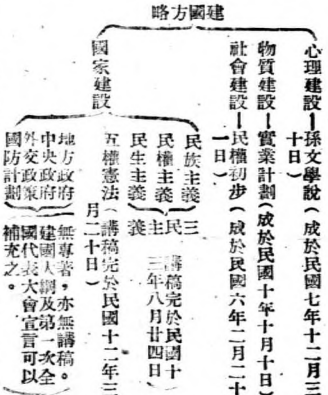 建國方略
心理建設—孫文學說(成於民國七年十二月三
十日)
物質建設—實業計劃(成於民國十年十月十日)
社會建設—民權初步(成於民國六年二月二十
一日)
國家建設
民族主義
民權主義
民生主義
三主義
講稿完於民國十
三年八月廿四日)
五權憲法(講稿完於民國十二年三
月二十日)
地方政府
中央政府
外交政策
國防計劃
無專著,亦無講稿。
建國大綱及第一次全
國代表大會宣言可以
補充之。